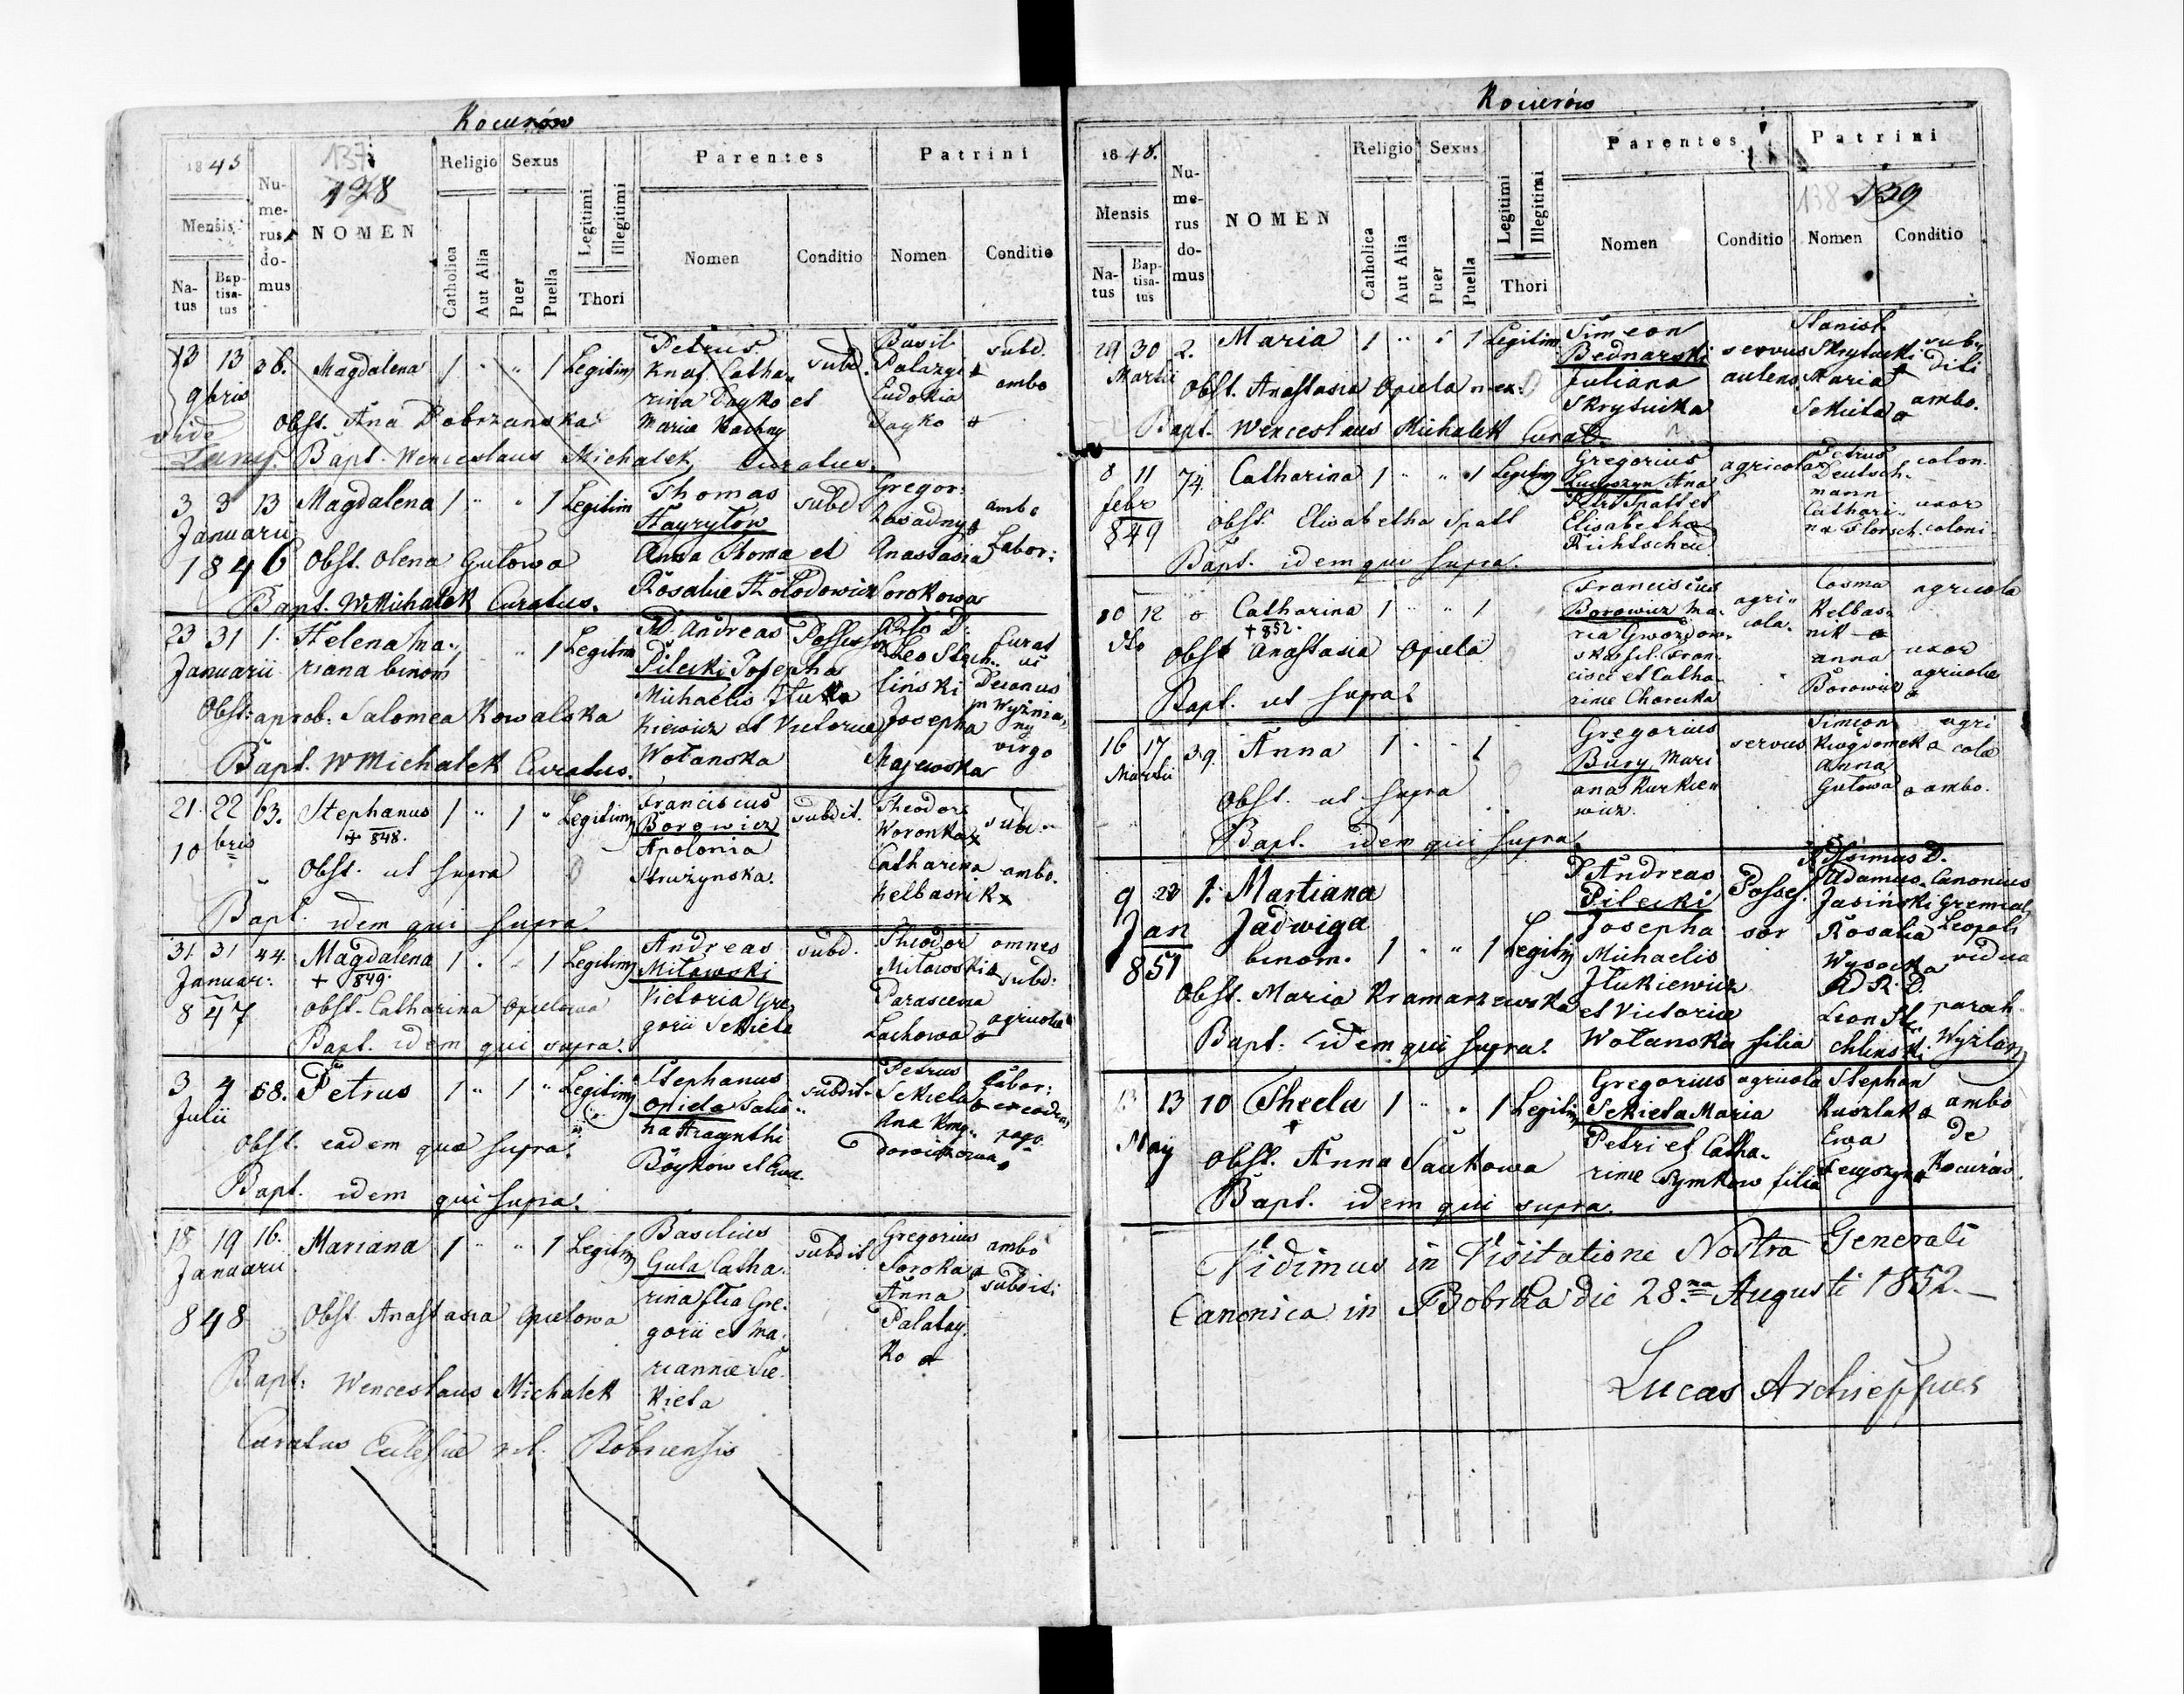 Kocurów
1845
137
138
Mensis
Natus
Baptisatus
Numerus domus
NOMEN
Religio
Catholica
Aut Alia
Sexus
Puer
Puella
Legitimi
Illegitimi
Thori
Parentes
Nomen
Conditio
Patrini
Nomen
Conditio
13 13 38. Magdalena 1 " " 1 Legitim Petrus subd. Basil subd.
9bris Knaf Catha- Palazyi + ambo
rina Dayko et Eudokia
vide Obst. Ana Dobrzanska Maria Dayko +
Bapt. Wenceslaus Michalek Curatus.
3 3 13 Magdalena 1 " " 1 Legitim Thomas subd. Gregor: ambo
Januarii Hayrylów Labor:
1846 Obst. Olena Gutowa Anna Stoma et Anastasia
Bapt. WMichalek Curatus. Rosalie Hołodowicz Sorokowa
23 31 1. Helena Ma- " 1 Legitim D. Andreas Possessor Leo Stech- Curat
Januarii riana binom Pilecki Josepha liński Decanus
Obst: aprob: Salomea Kowalska Michaelis Josepha in Wyżnia-
kiewicz et Victoriae ny
Bapt. WMichalek Curatus. Wołanska Majewska virgo
21 22 63. Stephanus 1 " 1 " Legitim Franciscus subdit. Theodor subd.
10bris + 848. Borowicz Woronka x
Obst. ut supra Apolonia Catharina ambo.
Struzynska. Kelbasnik x
Bapt. idem qui supra.
31 31 44. Magdalena 1 " " 1 Legitim Andreas subd. Theodor omnes
Januar: + 849. Miławski Miławski subd:
847 Obst. Catharina Opielowa Victoria Gre- Parascena agricolae
Bapt. idem qui supra. gorii Sekiela Lachowa
3 4 58. Petrus 1 " 1 " Legitim Stephanus subdit. Petrus Labor:
Julii Opiela Sekiela
Obst. eadem quae supra. Ana pago.
Boyków et Ewa.
Bapt. idem qui supra.
18 19 16. Mariana 1 " " 1 Legitim Basilius subdit. Gregorius ambo
Januarii Gula Catha- Soroka subditi
848 Obst. Anastasia Opielowa rina filia Gre- Anna
gorii et Ma- Palatay
Bapt: Wenceslaus Michalek riannae Se- ko
kiela
Curatus Ecclesiae Bobrcensis
Kocurów
1848.
138
139
Mensis
Natus
Baptisatus
Numerus domus
NOMEN
Religio
Catholica
Aut Alia
Sexus
Puer
Puella
Legitimi
Illegitimi
Thori
Parentes
Nomen
Conditio
Patrini
Nomen
Conditio
29 30 2. Maria 1 " " 1 Legitim Simeon servus Stanisl. sub-
Martii Bednarski aulens diti
Obst. Anastasia Opiela Juliana Maria ambo.
Skrytucka Sekiela
Bapt. Wenceslaus Michalek Curat.
8 11 74. Catharina 1 " " 1 Legitim Gregorius agricola Petrus colon.
febr Ana Deutsch-
849 Obst. Elisabetha Spatt Petri Spatt et mann
Elisabetha Cathari- uxor
Bapt. idem qui supra. na Florsch. coloni
10 12 o Catharina 1 " " 1 Franciscus agri- Cosma agricola
dto + 852. Borowicz Ma- cola. Kelbas-
Obst Anastasia Opiela ria Gwozdow- nik
ska fil. Fran- Anna uxor
Bapt. ut supra. cisci et Catha- Borowicz agricolae
rinae Chorecka
16 17 39. Anna 1 " " 1 Gregorius servus Simeon agri
Martii Bury Mari cola
Obst. ut supra ana Kurkie- Anna
wicz. Gutowa ambo.
Bapt. idem qui supra.
9 23 1. Martiana D. Andreas Posses- D.
Jan Jadwiga Pilecki sor Adamus Canonicus
851 binom. 1 " " 1 Legitim Josepha Jasiński Gremial
Michaelis Rosalia Leopoli
Obst. Maria Kramarzewska et Victoriae Wysocka vidua
Wołanska filia R. D. paroch.
Bapt. idem qui supra. Leon Ste- chlinski
13 13 10 Thecla 1 " " 1 Legitim Gregorius agricola Stephan ambo
May + Sekiela Maria Kuszlak de
Obst. Anna Saukowa Petri et Catha- Ewa Kocurów.
rinae Symkow filia
Bapt. idem qui supra.
Vidimus in Visitatione Nostra Generali
Canonica in Bobrka die 28na Augusti 1852.
Lucas Archieppus